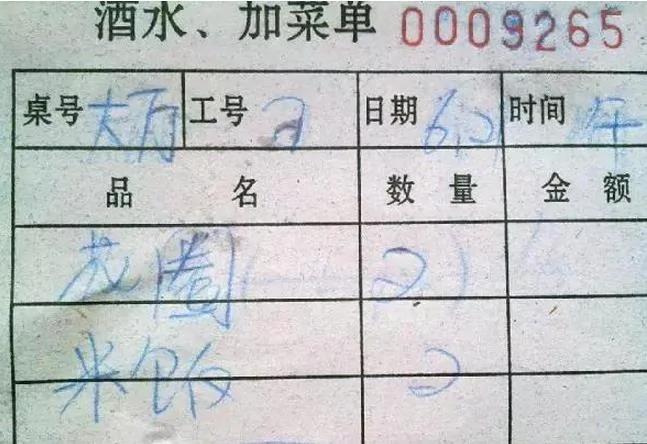 酒水、加菜单 0009265
桌号 大厅 工号 2 日期 6.2 时间 午
品名 数量 金额
花圈 2
米饭 2